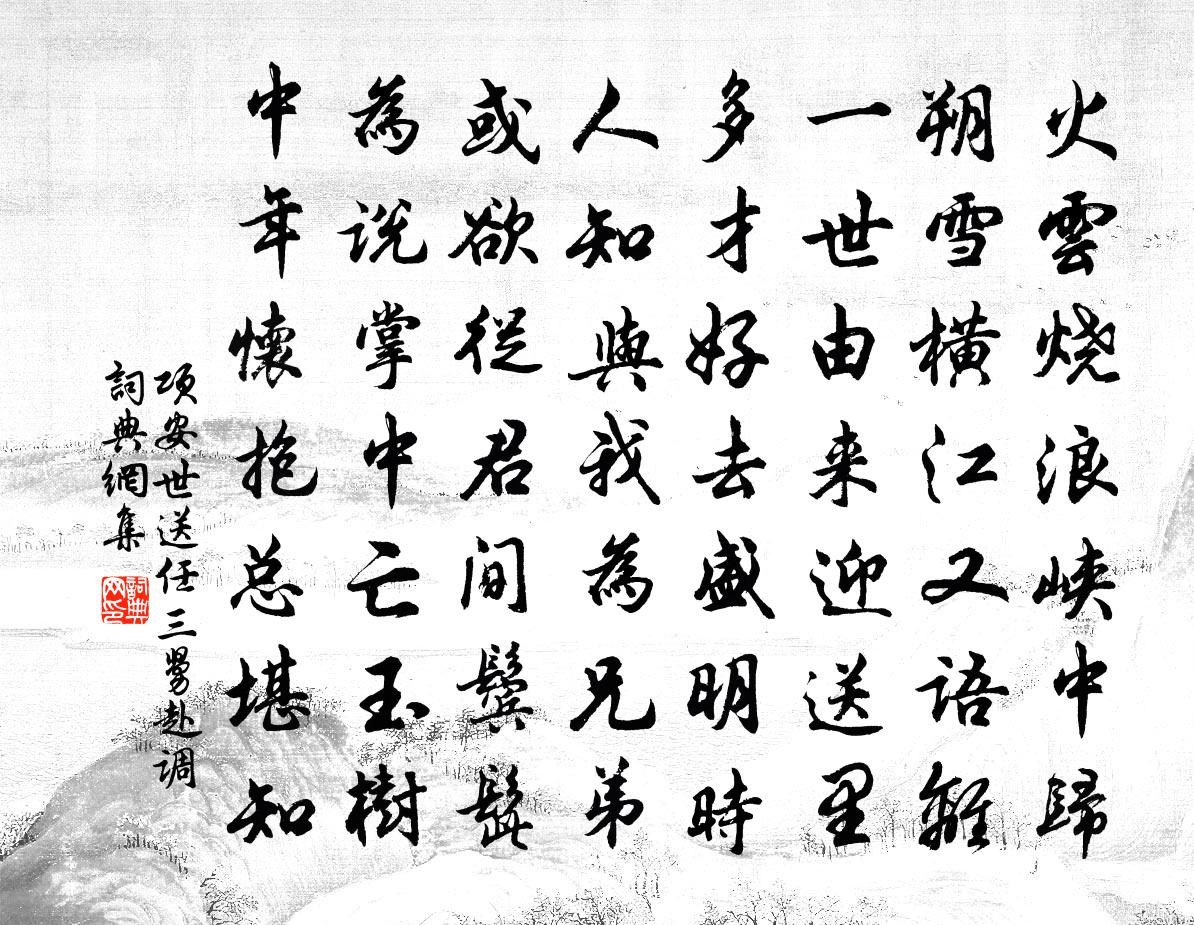 火雲燒浪峽中歸
朔雪橫江又語離
一世由来迎送里
多才好去盛明時
人知與我為兄弟
或欲從君間鬢髭
為說掌中亡玉樹
中年懷抱总堪知
项安世送任三舅赴调
詞典網集
詞典网印